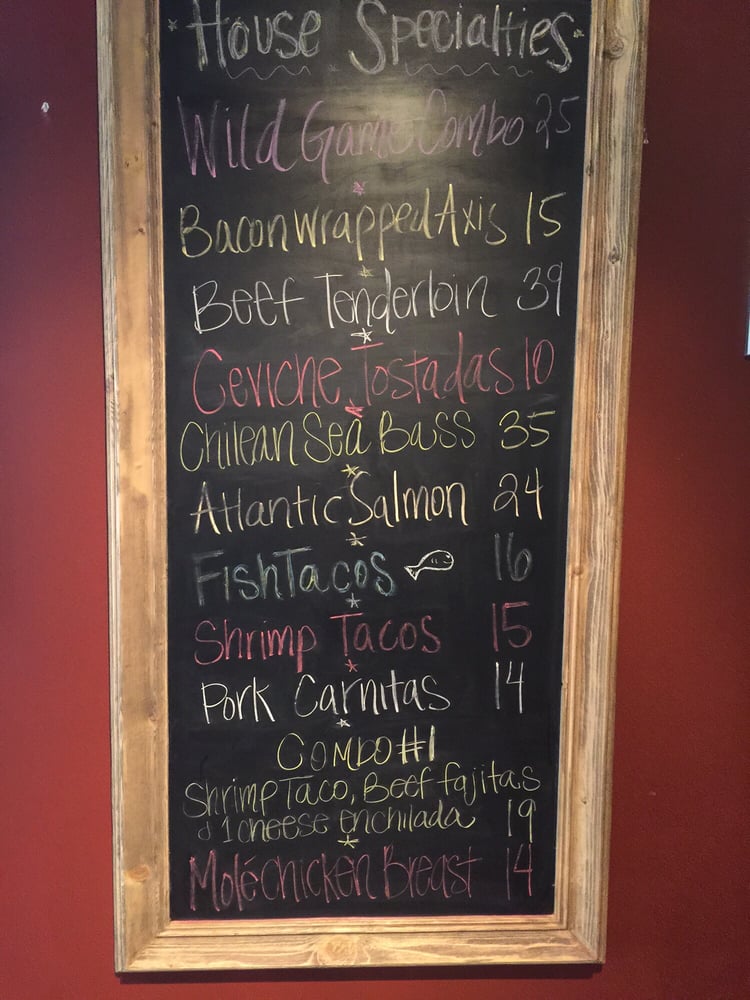 House Specialties
Wild Game Combo 25
Bacon Wrapped Axis 15
Beef Tenderloin 39
Ceviche Tostadas 10
Chilean Sea Bass 35
Atlantic Salmon 24
Fish Tacos 16
Shrimp Tacos 15
Pork Carnitas 14
COMBO #1
Shrimp Taco, Beef fajitas
& 1 cheese enchilada 19
Molé Chicken Breast 14